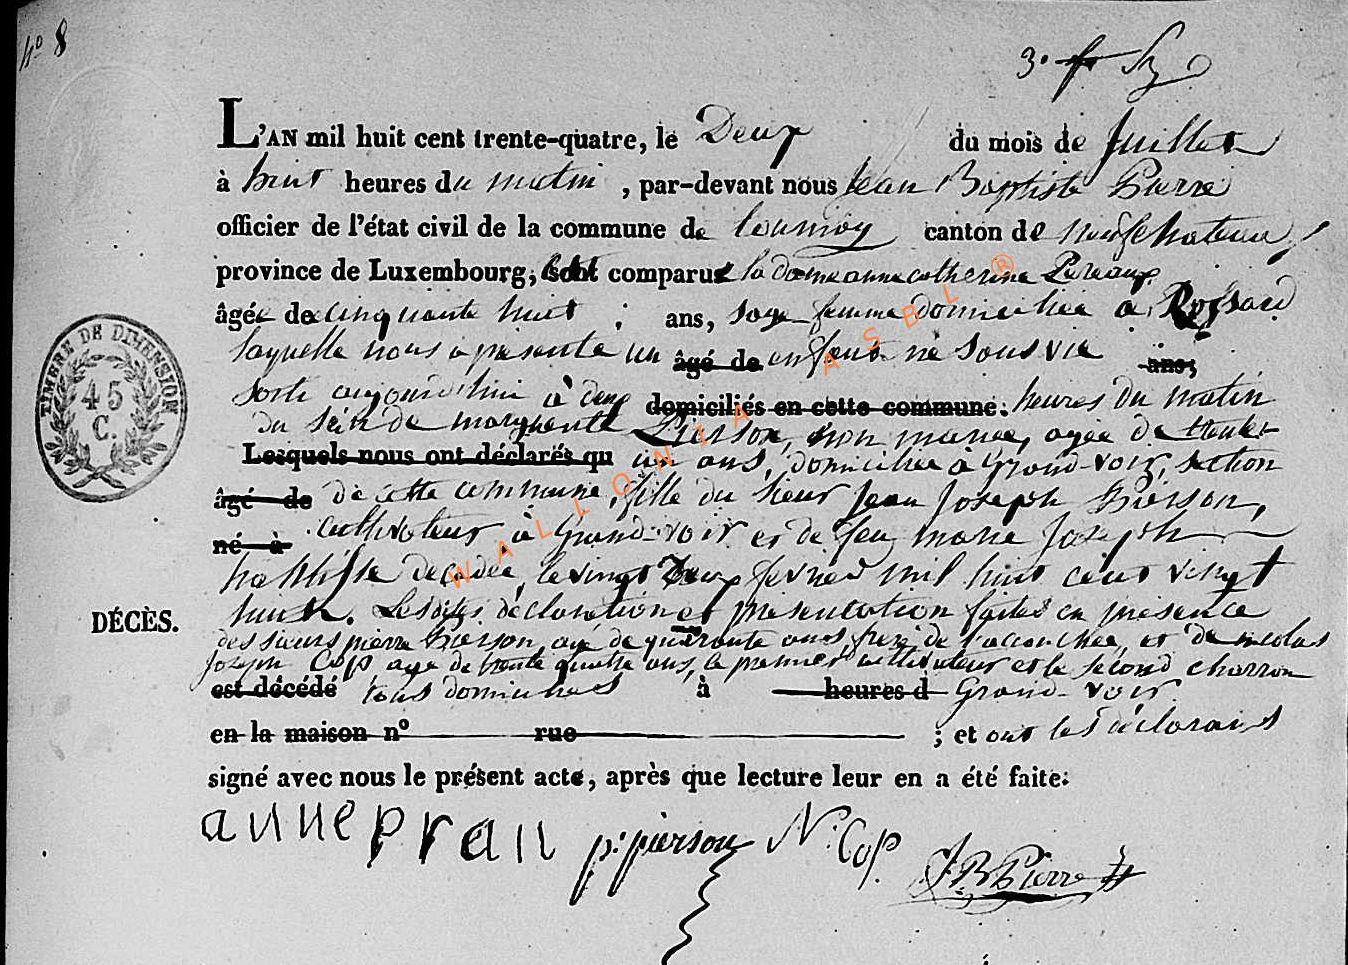 nº 8
L'AN mil huit cent trente-quatre, le Deux du mois de Juillet
à huit heures du matin, par-devant nous Jean Baptiste Pierre
officier de l'état civil de la commune de tournay canton de neufchateau,
province de Luxembourg, sont comparue la dame anne catherine
âgée de cinquante huit ans, sage femme domiciliée à Rossard
laquelle nous a présenté un âgé de enfant né sous vie ans;
sorti aujourd'hui à deux domiciliés en cette commune; heures du matin
du sein de marguerite Pierson, non mariée, agée de trente
Lesquels nous ont déclarés qu un ans, domiciliée à Grand-voir, section
âgé de de cette commune, fille du sieur Jean Joseph Pierson,
né à cultivateur à Grand-voir et de feu marie Joseph
décédée, le vingt Deux fevrier mil huit cent vingt
huit. Lesdites déclaration et présentation faites en présence
DÉCÈS.
des sieurs pierre Pierson, agé de quarante ans, frere de l'accouchée, et de nicolas
Joseph Cop agé de trente quatre ans, le premier cultivateur et le second charron
est décédé tous domiciliés à heures d Grand-voir
en la maison nº rue ; et ont les déclarans
signé avec nous le présent acte, après que lecture leur en a été faite.
anne pran p: pierson N: Cop. J B Pierre
TIMBRE DE DIMENSION
45
C.
WALLONIA ASBL ®